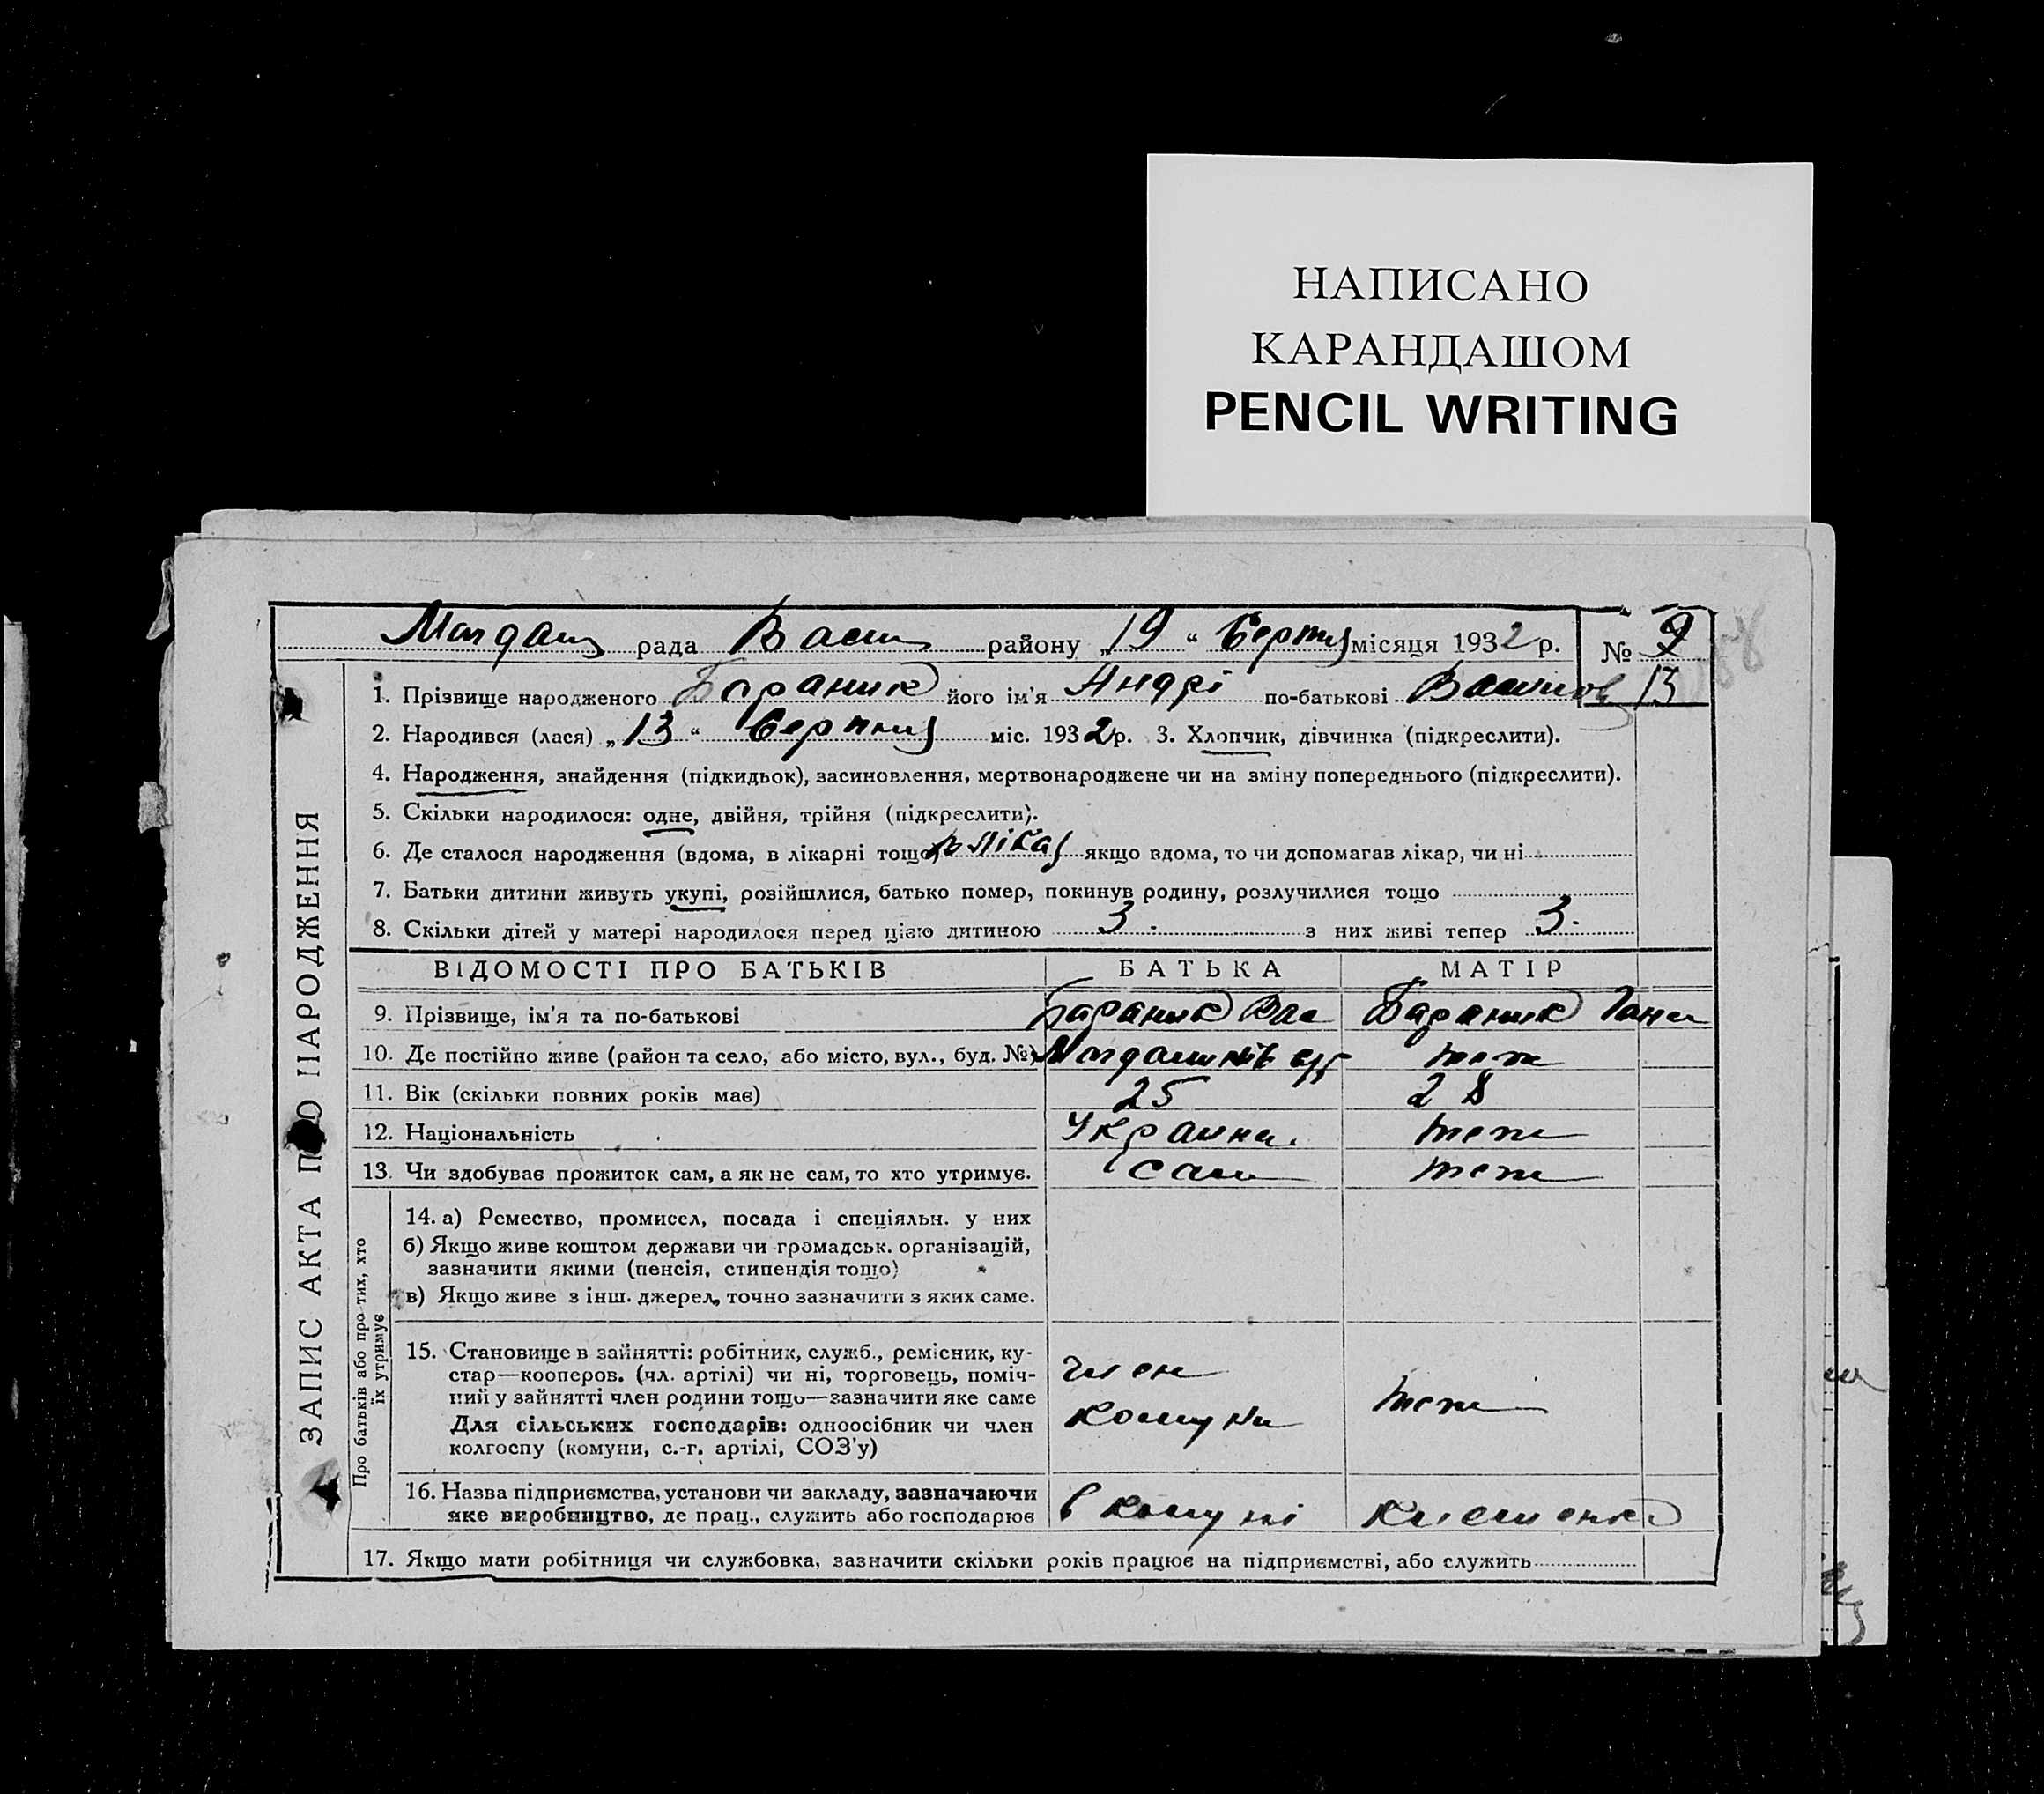 НАПИСАНО
КАРАНДАШОМ
PENCIL WRITING
рада Васи району „19“ Серпня місяця 1932 р. № 9
13
ЗАПИС АКТА ПРО НАРОДЖЕННЯ
1. Прізвище народженого Бараник його ім’я Андрі по-батькові Васильов
2. Народився (лася) „13“ Серпня міс. 1932 р. 3. Хлопчик, дівчинка (підкреслити).
4. Народження, знайдення (підкидьок), засиновлення, мертвонароджене чи на зміну попереднього (підкреслити).
5. Скільки народилося: одне, двійня, трійня (підкреслити).
6. Де сталося народження (вдома, в лікарні тощо) в якщо вдома, то чи допомагав лікар, чи ні
7. Батьки дитини живуть укупі, розійшлися, батько помер, покинув родину, розлучилися тощо
8. Скільки дітей у матері народилося перед цією дитиною 3. з них живі тепер 3.
ВІДОМОСТІ ПРО БАТЬКІВ БАТЬКА МАТІР
9. Прізвище, ім’я та по-батькові Бараник Вас Бараник Ганна
10. Де постійно живе (район та село, або місто, вул., буд. №) теж
11. Вік (скільки повних років має) 25 28
12. Національність Украина. теж
13. Чи здобуває прожиток сам, а як не сам, то хто утримує. сам теж
Про батьків або про тих, хто
їх утримує
14. а) Ремество, промисел, посада і спеціяльн. у них
б) Якщо живе коштом держави чи громадськ. організацій,
зазначити якими (пенсія, стипендія тощо)
в) Якщо живе з інш. джерел, точно зазначити з яких саме.
15. Становище в зайнятті: робітник, служб., ремісник, ку-
стар—кооперов. (чл. артілі) чи ні, торговець, поміч-
ний у зайнятті член родини тощо—зазначити яке саме
Для сільських господарів: одноосібник чи член
колгоспу (комуни, с.-г. артілі, СОЗ’у)
член
комуни
теж
16. Назва підприємства, установи чи закладу, зазначаючи
яке виробництво, де прац., служить або господарює
в комуні
17. Якщо мати робітниця чи службовка, зазначити скільки років працює на підприємстві, або служить